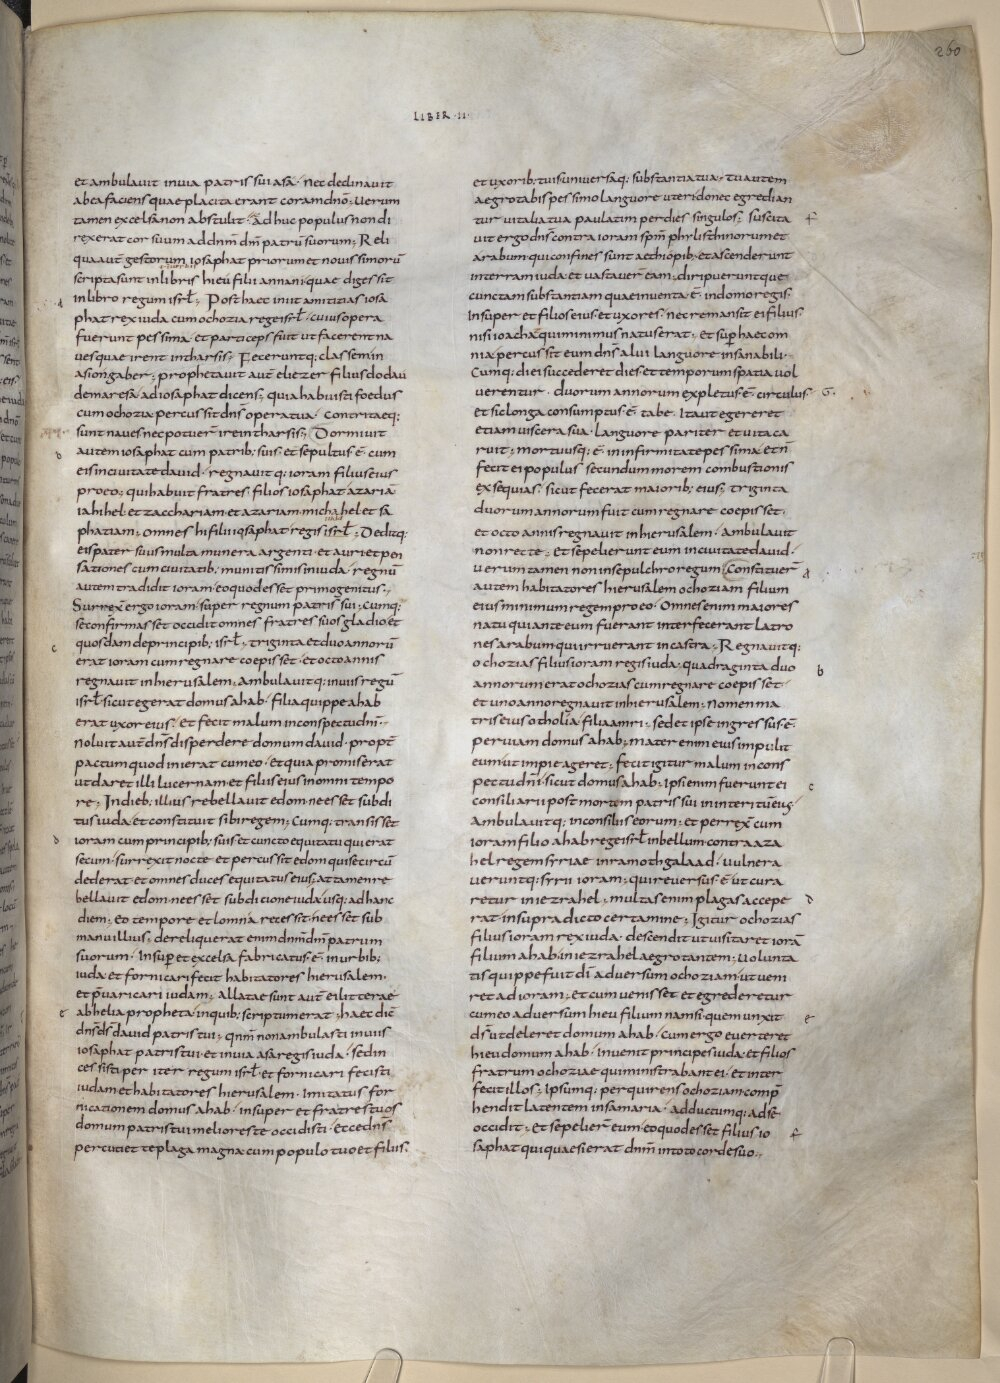 260
LIBER · II ·
et ambulavit in via patris sui asa · nec declinavit
ab ea faciens quae placita erant coram dño; Verum
tamen excelsa non abstulit · ad huc populus non di
rexerat cor suum ad dnm̄ dm̄ patrū suorum; Reli
qua aut̄ gestorum iosaphat priorum et novissimorū
scripta sunt in libris hieu filii annani · quae digessit
in libro regum isrł; Post haec iniit amicitias iosa
phat rex iuda cum ochozia rege isrł · cuius opera
fuerunt pessima · et particeps fuit ut facerent na
ves quae irent in tharsis; Feceruntq; classem in
asiongaber; prophetavit aut̄ eliezer filius dodau
de maresa · ad iosaphat dicens; quia habuisti foedus
cum ochozia percussit dñs opera tua · Contritaeq;
sunt naves nec potuer̄ ire in tharsis; Dormivit
autem iosaphat cum patrib; suis · et sepultus ē cum
eis in civitate david · regnavitq; ioram filius eius
pro eo; qui habuit fratres · filios iosaphat azariā
iahihel · et zacchariam · et azariam · michahel et sa
phatiam · omnes hi filii iosaphat regis isrł · Deditq;
eis pater suus multa munera argenti · et auri et pen
sationes cum civitatib; munitissimis in iuda · regnū
autem tradidit ioram · eo quod esset primogenitus;
Surrex̄ ergo ioram super regnum patris sui · Cumq;
se confirmasset occidit omnes fratres suos gladio et
quosdam de principib; isrł; triginta et duo annorū
erat ioram cum regnare coepisset · et octo annis
regnavit in hierusalem; ambulavitq; in viis regū
isrł · sicut egerat domus ahab · filia quippe ahab
erat uxor eius · et fecit malum in conspectu dnī ·
noluit aut̄ dñs disperdere domum david · propt̄
pactum quod inierat cum eo · et quia promiserat
ut daret illi lucernam et filiis eius in omni tempo
re; In dieb; illius rebellavit edom · ne esset subdi
tus iuda · et constituit sibi regem; Cumq; transisset
ioram cum principib; suis · et cuncto equitatu qui erat
secum · surrexit nocte et percussit edom qui se circū
dederat · et omnes duces equitatus eius; attamen re
bellavit edom · ne esset sub dicione iuda usq; ad hanc
diem; Eo tempore et lomna recessit · ne esset sub
manu illius; dereliquerat enim dnm̄ dm̄ patrum
suorum · Insup̄ et excelsa fabricatus ē · in urbib;
iuda · et fornicari fecit habitatores hierusalem ·
et p̄varicari iudam; allatae sunt aut̄ ei litterae
ab helia propheta in quib; scriptum erat; haec dic̄
dñs d̄s david patris tui; Qnm̄ non ambulasti in viis
iosaphat patris tui · et in via asa regis iuda · sed in
cessisti per iter regum isrł · et fornicari fecisti
iudam et habitatores hierusalem · Imitatus for
nicationem domus ahab · insuper et fratres tuos
domum patris tui meliores te occidisti · Ecce dñs
percutiet te plaga magna cum populo tuo et filiis
et uxorib; tuis universaq; substantia tua · tu autem
aegrotabis pessimo languore uteri · donec egredian
tur vitalia tua paulatim per dies singulos; suscita
vit ergo dñs contra ioram spm̄ philisthinorum et
arabum qui confines sunt aethiopib; et ascenderunt
in terram iuda · et vastaver̄ eam; diripueruntque
cunctam substantiam quae inventa ē · in domo regis
Insuper et filios eius et uxores · nec remansit ei filius
nisi ioachaz qui minimus natu erat · et sup̄ haec om
nia percussit eum dñs alvi languore insanabili ·
Cumq; diei succederet dies · et temporum spatia vol
verentur · duorum annorum expletus ē · circulus ·
et sic longa consumptus ē · tabe · Ita ut egereret
etiam viscera sua · languore pariter et vita ca
ruit; mortuusq; ē · in infirmitate pessima · et ñ
fecit ei populus secundum morem combustionis
exsequias; sicut fecerat maiorib; eius; triginta
duorum annorum fuit cum regnare coepisset ·
et octo annis regnavit in hierusalem · ambulavit
non recte; Et sepelierunt eum in civitate david ·
verum tamen non in sepulchro regum; Constituer̄
autem habitatores hierusalem ochoziam filium
eius minimum regem pro eo · Omnes enim maiores
natu qui ante eum fuerant interfecerant latro
nes arabum qui irruerant in castra; Regnavitq;
ochozias filius ioram regis iuda; quadraginta duo
annorum erat ochozias cum regnare coepisset ·
et uno anno regnavit in hierusalem; nomen ma
tris eius otholia filia amri; sed et ipse ingressus ē
per viam domus ahab; mater enim eius impulit
eum ut impie ageret; fecit igitur malum in cons
pectu dnī · sicut domus ahab; Ipsi enim fuerunt ei
consiliarii post mortem patris sui in interitū eius
Ambulavitq; in consiliis eorum; et perrex̄ cum
ioram filio ahab rege isrł in bellum contra aza
hel regem syriae in ramoth galaad; vulnera
veruntq; syrii ioram; qui reversus ē · ut cura
retur in iezrahel; multas enim plagas accepe
rat in supra dicto certamine; Igitur ochozias
filius ioram rex iuda · descendit ut visitaret iorā
filium ahab in iezrahel aegrotantem; Volunta
tis quippe fuit dī adversum ochoziam · ut veni
ret ad ioram; et cum venisset et egrederetur
cum eo adversum hieu filium namsi · quem unxit
d̄s ut deleret domum ahab · Cum ergo everteret
hieu domum ahab · invenit principes iuda · et filios
fratrum ochoziae qui ministrabant ei · et inter
fecit illos; Ipsumq; perquirens ochoziam comp̄
hendit latentem in samaria · adductumq; ad se
occidit; Et sepelier̄ eum · eo quod esset filius io
saphat qui quaesierat dnm̄ in toto corde suo;